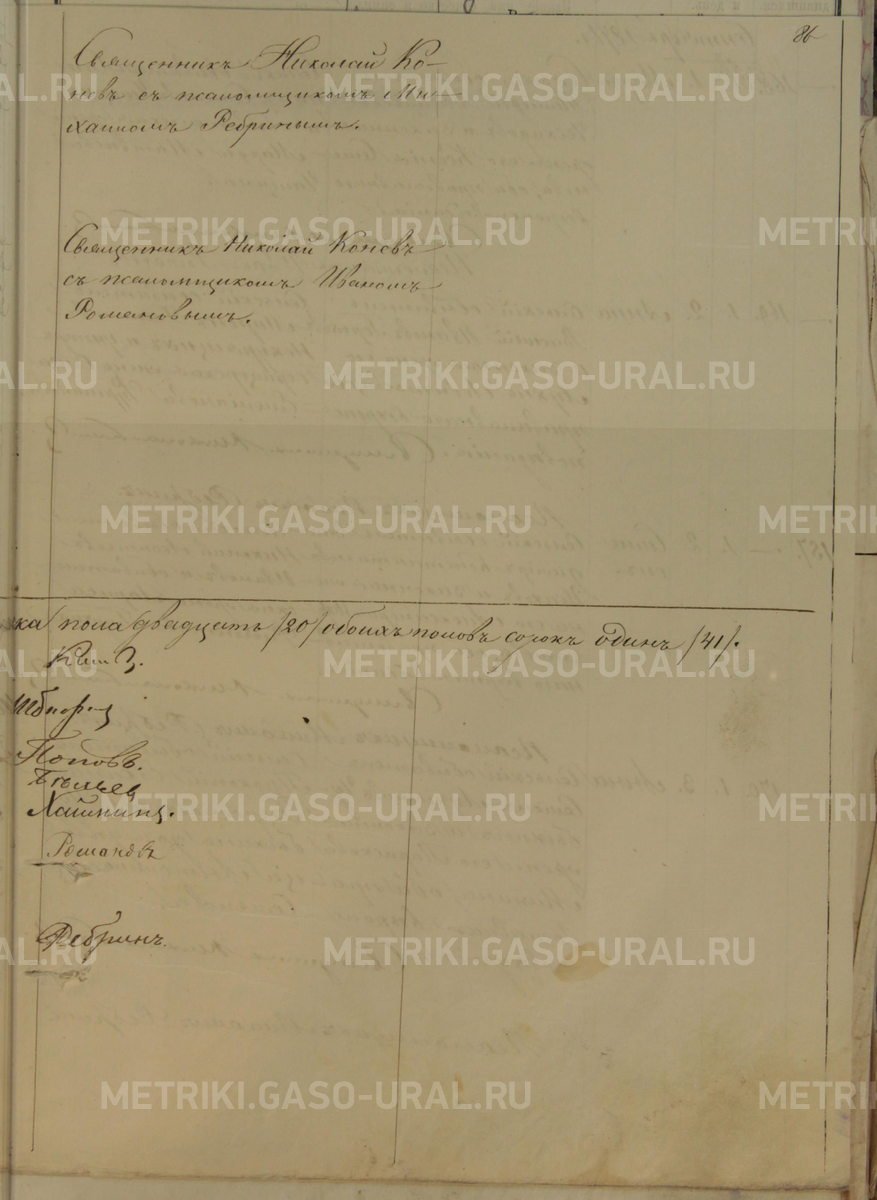 86
Священникъ Николай Ко-
невъ съ псаломщикомъ Ми-
хаиломъ Ребринымъ.
Священникъ Николай Коневъ
съ псаломщикомъ Иваномъ
Романовымъ.
ка пола двадцать /20/ обоихъ половъ сорокъ одинъ /41/.
Поповъ.
Романовъ
Ребринъ.
METRIKI.GASO-URAL.RU